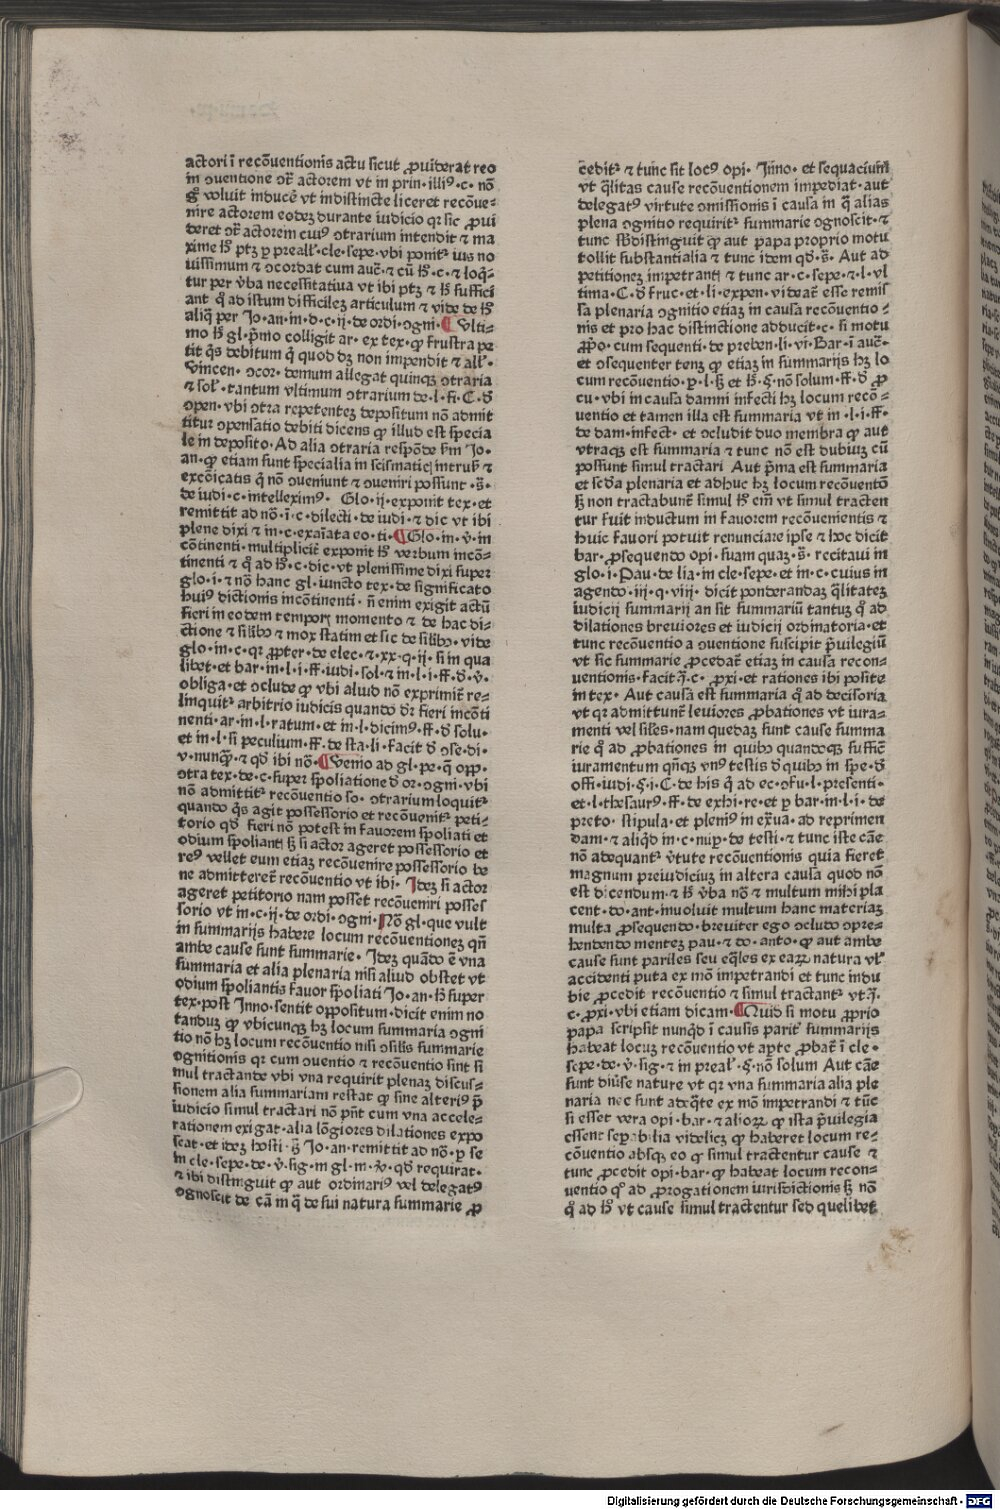 actori ī recōuentionis actu sicut ꝓuiderat reo
in ↄuentione ↄ̄tᷓ actorem vt in prin·illiꝰ·c·nō
gͦ voluit inducē vt indistincte liceret recōue⸗
nire actorem eodeꝫ durante iudicio qꝛ sic ꝓui
deret ↄ̄tᷓ actorem cuiꝰ ↄtrarium intendit ⁊ ma
xime hͦ ptꝫ ꝑ preallͣ·cle·sepe·vbi ponitᷣ ius no
uissimum ⁊ ↄcordat cum aucͭ·⁊ cū hͦ·c·⁊ loqͥ⸗
tur per v̄ba necessitatiua vt ibi ptꝫ ⁊ hͦ suffici
ant qͦ ad istum difficileꝫ articulum ⁊ vide de hͦ
aliqͥ per Jo·an·in·d·c·ij·de ordi·ↄgni· Vlti⸗
mo hͦ gl·p̄mo colligit ar·ex tex·ꝙ frustra pe
tit qͥs debitum qͦ quod dꝫ non impendit ⁊ allͣ·
vincen·ↄcor·demum allegat quinqꝫ ↄtraria
⁊ solͥ·tantum vltimum ↄtrarium de·l·fi·C·d̄
ↄpen·vbi ↄtra repetenteꝫ depositum nō admit
titur ↄpensatio debiti dicens ꝙ illud est specia
le in deposito·Ad alia ↄtraria respōde ẜm Jo·
an·ꝙ etiam sunt specialia in scismaticꝭ intruẜ ⁊
excōicatis qͥ nō ↄueniunt ⁊ ↄueniri possunt·s̄·
de iudi·c·intelleximꝰ· Glo·ij·exponit tex·et
remittit ad nō·ī·c·dilecti·de iudi·⁊ dic vt ibi
plene dixi ⁊ in·c·exaīata eo·ti· Glo·in·v̄·in
cōtinenti·multiplicit̄ exponit hͦ verbum incō⸗
tinenti ⁊ qͦ ad hͦ·c·dic·vt plenissime dixi super
glo·i·⁊ nō hanc gl·iuncto tex·de significato
huiꝰ dictionis incōtinenti·n̄ enim exigit actū
fieri in eodem temporꝭ momento ⁊ de hac di⸗
ctione ⁊ silibꝰ ⁊ mox statim et sic de silibꝰ·vide
glo·in·c·qꝛ ꝓpter·de elec·⁊·xx·q·ij·si in qua
libet·et bar·in·l·i·ff·iudi·sol·⁊ in·l·i·ff·d̄·v̄·
obliga·et ↄclude ꝙ vbi aliud nō exprimit̄ re⸗
linquitᷣ arbitrio iudicis quando dr̄ fieri incōti
nenti·ar·in·l·ratum·et in·l·dicimꝰ·ff·d̄ solu·
et in·l·si peculium·ff·de sta·li·facit d̄ ↄse·di·
v·nunqͣꝫ·⁊ qd̄ ibi nō· Venio ad gl·pe·q̄ opp·
ↄtra tex·de·c·super spoliatione d̄ or·ↄgni·vbi
nō admittitᷣ recōuentio so·ↄtrarium loquitᷣ
quando qͥs agit possessorio et recōuenitᷣ peti⸗
torio qd̄ fieri nō potest in fauorem spoliati et
odium spoliantꝭ ẜꝫ si actor ageret possessorio et
reꝰ vellet eum etiaꝫ recōuenire possessorio be
ne admitteret̄ recōuentio vt ibi· Jdeꝫ si actor
ageret petitorio nam posset recōueniri posses
sorio vt in·c·ij·de ordi·ↄgni·Nō gl·que vult
in summarijs habere locum recōuentioneꝫ qn̄
ambe cause sunt summarie·Jdeꝫ quādo ē vna
summaria et alia plenaria nisi aliud obstet vt
odium spoliantis fauor spoliati Jo·an·hͦ super
tex·post Jnno·sentit oppositum·dicit enim no
tanduꝫ ꝙ vbicunqꝫ hꝫ locum summaria ↄgni
tio nō hꝫ locum recōuentio nisi ↄsilis summarie
ↄgnitionis qꝛ cum ↄuentio ⁊ recōuentio sint si
mul tractande vbi vna requirit plenaꝫ discus⸗
sionem alia summariam restat ꝙ sine alteriꝰ p̄
iudicio simul tractari nō pn̄t cum vna accele⸗
rationem exigat·alia lōgiores dilationes expo
scat·et ideꝫ hosti·ẜꝫ Jo·an·remittit ad nō·ꝑ se
in cle·sepe·de·v̄·sig·in gl·in·v̄·qd̄ requirat·
⁊ ibi distinguit ꝙ aut ordinariꝰ vel delegatꝰ
ↄgnoscit de cā in qͣ de sui natura summarie ꝓ
ceditᷣ ⁊ tunc sit locꝰ opi· Jnno·et sequacium
vt qͣlitas cause recōuentionem impediat·aut
delegatꝰ virtute ↄmissionis ī causa in qͣ alias
plena ↄgnitio requiritᷣ summarie ↄgnoscit·⁊
tunc sb̄distinguit ꝙ aut papa proprio motu
tollit substantialia ⁊ tunc idem qd̄·s̄· Aut ad
petitioneꝫ impetrantꝭ ⁊ tunc ar·c·sepe·⁊·l·vl
tima·C·d̄ fruc·et·li·expen·videat̄ esse remis
sa plenaria ↄgnitio etiaꝫ in causa recōuentio⸗
nis et pro hac distinctione adducit·c·si motu
ꝓpͥo·cum sequenti·de preben·li·vi·Bar·ī aucͭ⸗
et ↄsequenter tenꝫ ꝙ etiaꝫ in summarijs hꝫ lo
cum recōuentio·ꝑ·l·ẜꝫ et hͦ·§·nō solum·ff·d̄ ꝓ
cu·vbi in causa damni infecti hꝫ locum recō⸗
uentio et tamen illa est summaria vt in·l·i·ff·
de dam·infect·et ↄcludit duo membra ꝙ aut
vtraqꝫ est summaria ⁊ tunc nō est dubiuꝫ cū
possunt simul tractari Aut p̄ma est summaria
et sc̄da plenaria et adhuc hꝫ locum recōuentō
ẜꝫ non tractabunt̄ simul hͦ em̄ vt simul tracten
tur fuit inductum in fauorem recōuenientis ⁊
huic fauori potuit renunciare ipse ⁊ hoc dicit
bar·ꝓsequendo opi·suam quaꝫ·s̄·recitaui in
glo·i·Pau·de lia·in cle·sepe·et in·c·cuius in
agendo·iij·q·viij·dicit ponderandaꝫ qͣlitateꝫ
iudicij summarij an sit summariū tantuꝫ qͦ ad
dilationes breuiores et iudicij ordinatoria·et
tunc recōuentio a ↄuentione suscipit p̄uilegiū
vt sic summarie ꝓcedat̄ etiaꝫ in causa recon⸗
uentionis·facit qͣ·c·ꝓxi·et rationes ibi posite
in tex·Aut causa est summaria qͦ ad decisoria
vt qꝛ admittunt̄ leuiores ꝓbationes vt iura⸗
menti vel siles·nam quedaꝫ sunt cause summa
rie qͦ ad ꝓbationes in quibꝰ quandoqꝫ sufficit
iuramentum qn̄qꝫ vnꝰ testis d̄ quibꝰ in spe·d̄
offi·iudi·§·i·C·de his qͥ ad ec·ↄfu·l·presenti·
et·l·thesaurꝰ·ff·de exhi·re·et ꝑ bar·in·l·i·de
preto·stipula·et pleniꝰ in ex̄ua·ad reprimen
dam·⁊ aliqͥd in·c·nuꝑ·de testi·⁊ tunc iste cāe
nō adequant̄ v̄tute recōuentionis quia fieret
magnum preiudiciuꝫ in altera causa quod nō
est dicendum·⁊ hͦ v̄ba nō ⁊ multum mihi pla
cent·do·ant·inuoluit multum hanc materiaꝫ
multa ꝓsequendo·breuiter ego ↄcludo ↄpre⸗
hendendo menteꝫ pau·⁊ do·anto·ꝙ aut ambe
cause sunt pariles seu eqͣles ex eaꝝ natura vlͣ
accidenti puta ex mō impetrandi et tunc indu
bie ꝓcedit recōuentio ⁊ simul tractantᷣ vt qͣ·
c·ꝓxi·vbi etiam dicam· Quid si motu ꝓprio
papa scripsit nunqͥd ī causis parit̄ summarijs
habeat locuꝫ recōuentio vt aꝑte ꝓbat̄ ī cle·
sepe·de·v̄·sig·⁊ in prealͣ·§·nō solum Aut cāe
sunt diūse nature vt qꝛ vna summaria alia ple
naria nec sunt adeqͣte ex mō impetrandi ⁊ tūc
si esset vera opi·bar·⁊ alioꝝ ꝙ ista p̄uilegia
essent seꝑabilia videlicꝫ ꝙ haberet locum re⸗
cōuentio absqꝫ eo ꝙ simul tractentur cause ⁊
tunc ꝓcedit opi·bar·ꝙ habeat locum recon⸗
uentio qͦ ad ꝓrogationem iurisdictionis ẜꝫ nō
qͦ ad hͦ vt cause simul tractentur sed quelibet
Digitalisierung gefördert durch die Deutsche Forschungsgemeinschaft - DFG